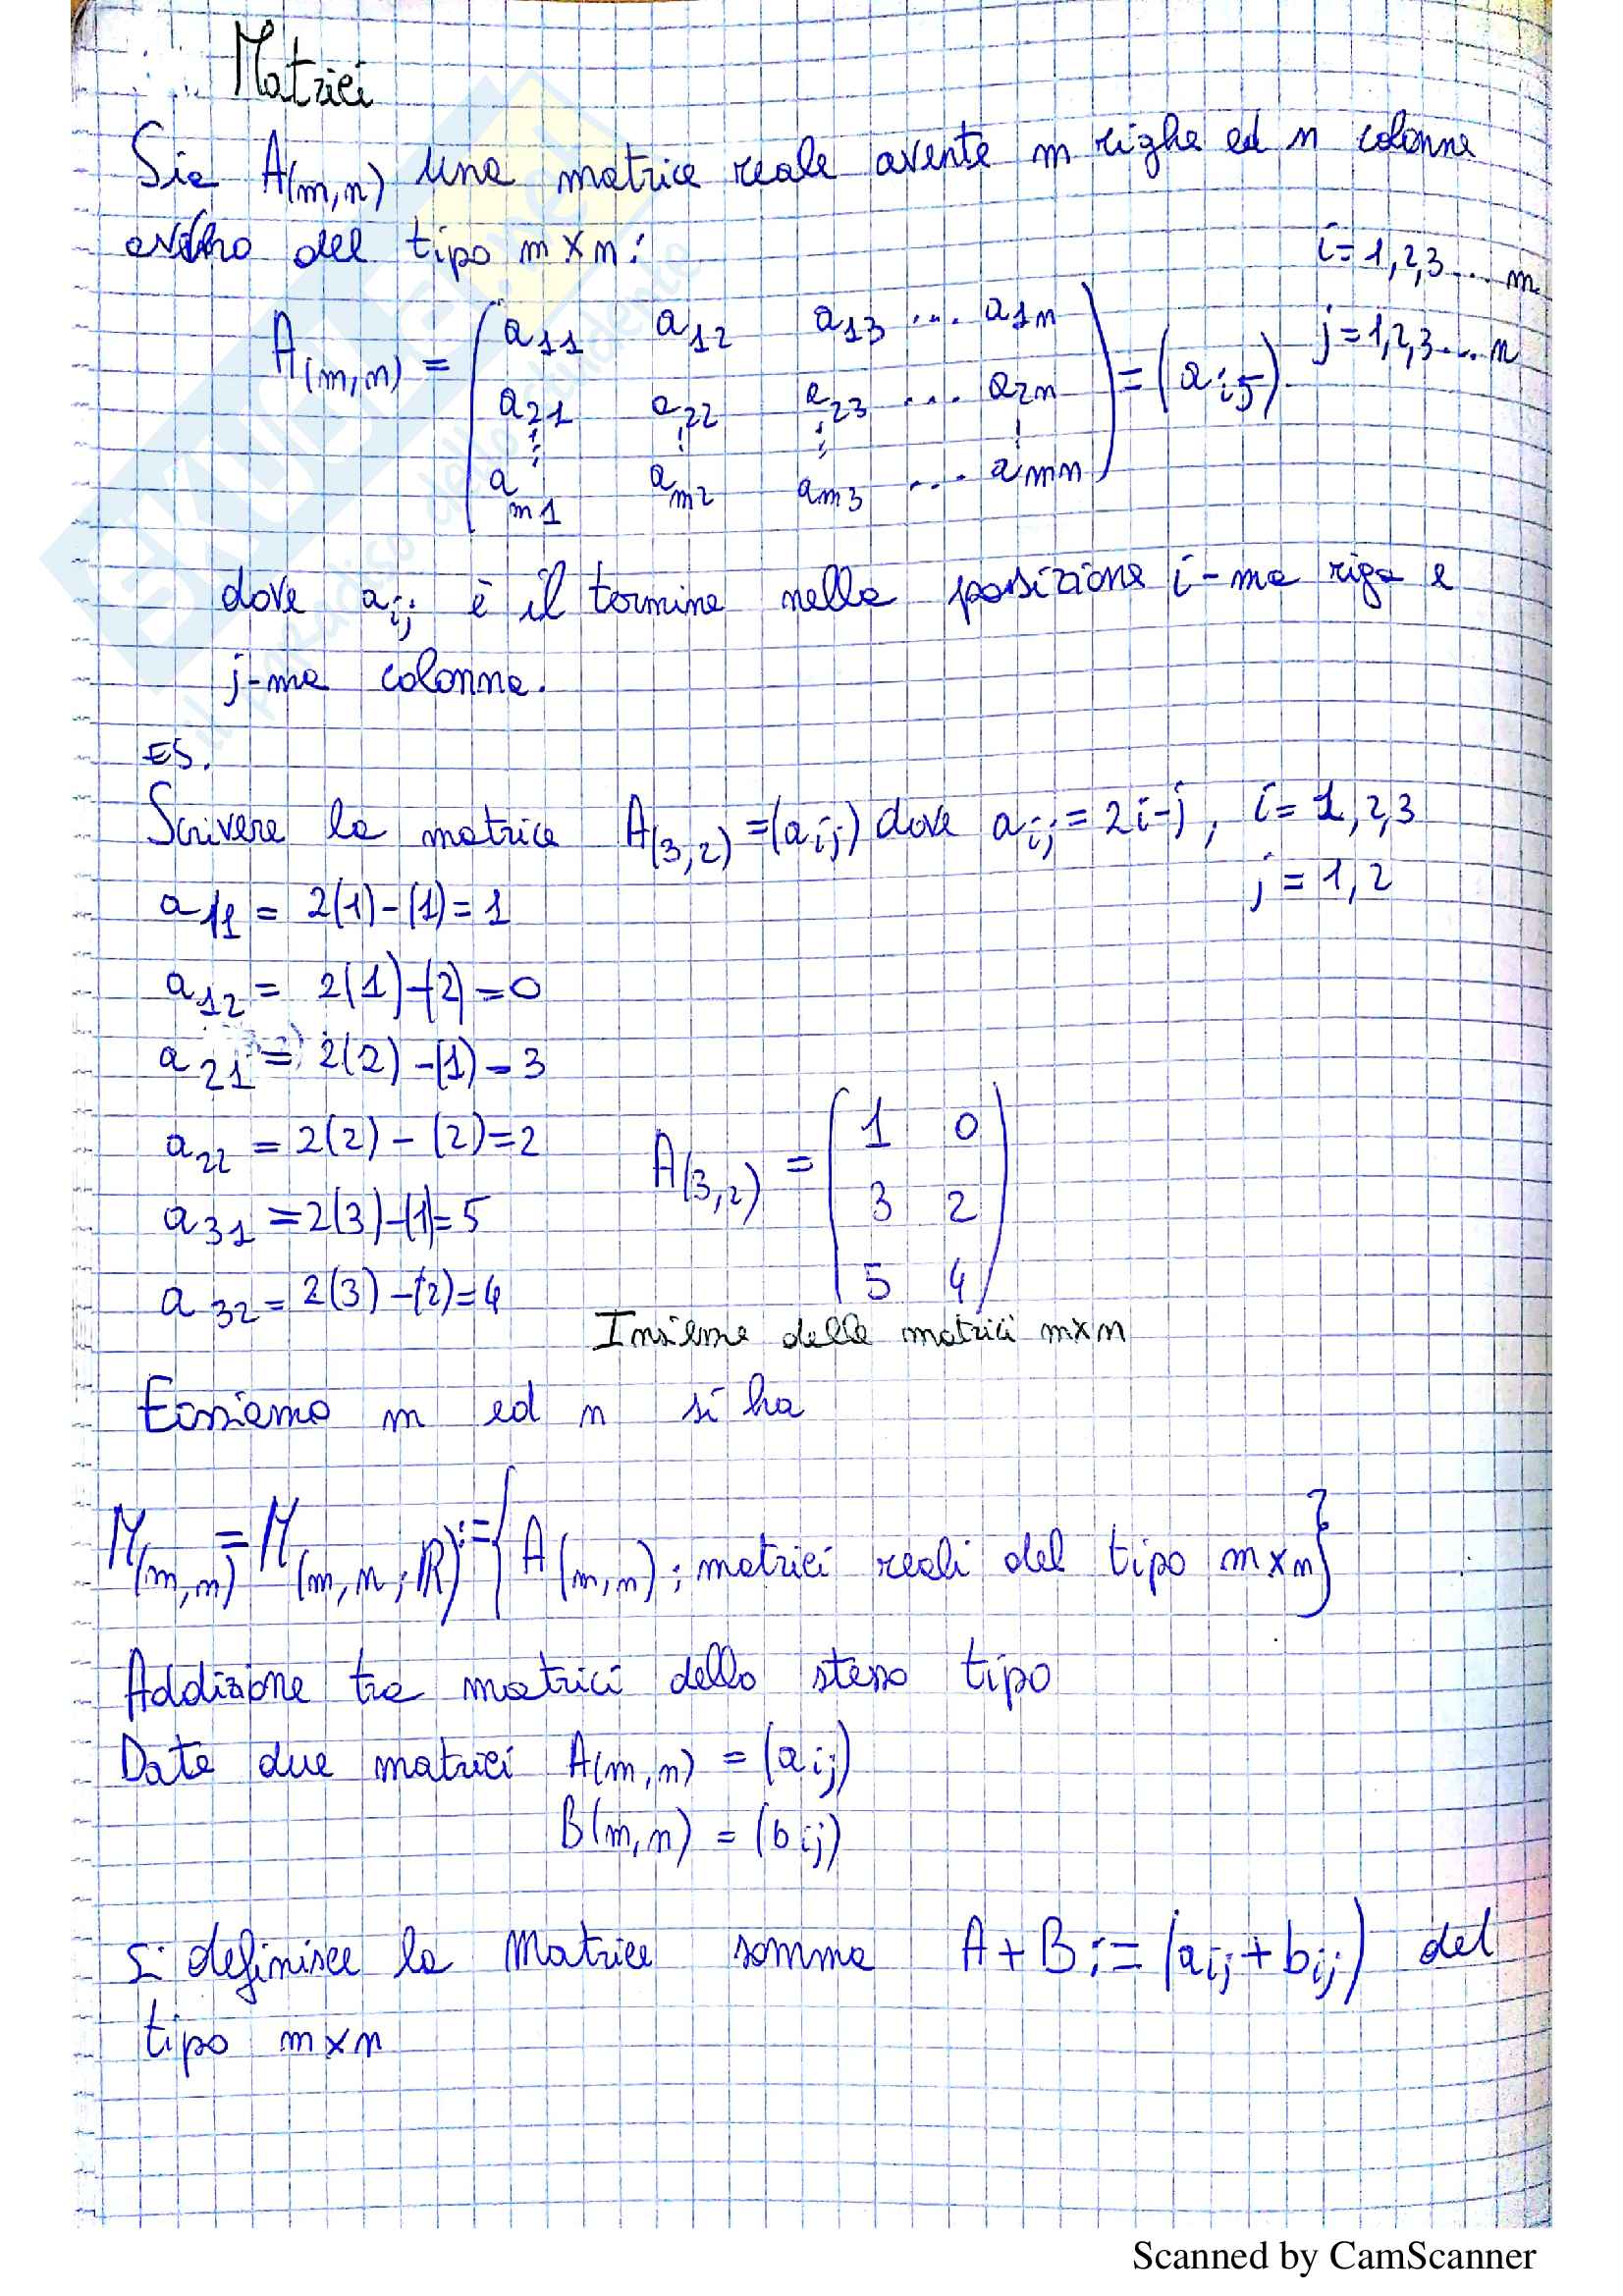 Matrici
Sia A(m,n) una matrice reale avente m righe ed n colonne
ovvero del tipo m×n:
i=1,2,3....m
j=1,2,3....n
A(m,n) = ( a11 a12 a13 ... a1n
a21 a22 a23 ... a2n
⋮ ⋮ ⋮ ⋮
am1 am2 am3 ... amn ) = (aij)
dove aij è il termine nella posizione i-ma riga e
j-ma colonna.
ES.
Scrivere la matrice A(3,2) = (aij) dove aij = 2i-j, i=1,2,3
j=1,2
a11 = 2(1)-(1)=1
a12 = 2(1)-(2)=0
a21 = 2(2)-(1)=3
a22 = 2(2)-(2)=2
a31 = 2(3)-(1)=5
a32 = 2(3)-(2)=4
A(3,2) = ( 1 0
3 2
5 4 )
Insieme delle matrici m×n
Fissiamo m ed n si ha
M(m,n) = M(m,n;ℝ) := { A(m,n); matrici reali del tipo m×n}
Addizione tra matrici dello stesso tipo
Date due matrici A(m,n) = (aij)
B(m,n) = (bij)
Si definisce la Matrice somma A+B := (aij+bij) del
tipo m×n
Scanned by CamScanner